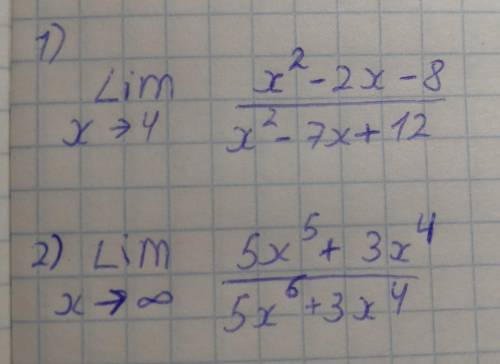 1)
Lim x² - 2x - 8
x → 4 x² - 7x + 12
2) Lim 5x⁵ + 3x⁴
x → ∞ 5x⁶ + 3x⁴